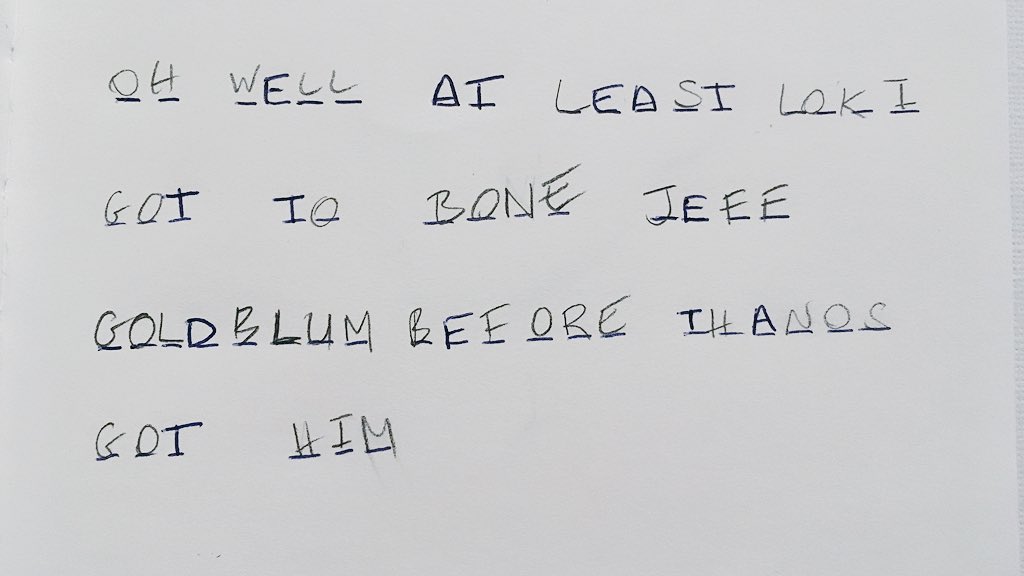 OH WELL AT LEAST LOKI
GOT TO BONE JEFF
GOLDBLUM BEFORE THANOS
GOT HIM